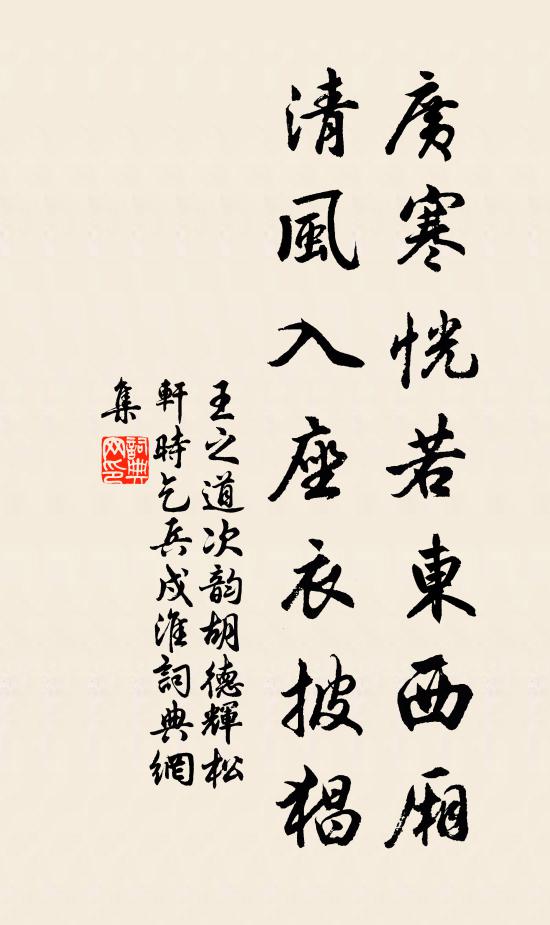 廣寒恍若東西厢
清風入座衣披猖
王之道次韵胡德輝松
軒時乞兵戍淮詞典網
集
詞典
网印